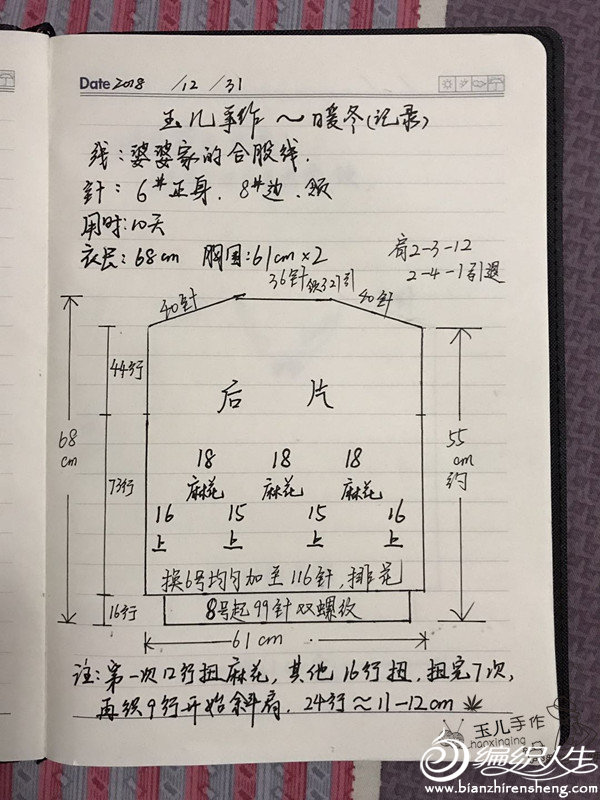 Date 2018 /12 /31
玉儿手作～暖冬(记录)
线:婆婆家的合股线.
针: 6#正身. 8#边.领
用时:10天
衣长: 68cm 胸围:61cm×2
肩2-3-12
2-4-1引退
36针
40针
40针
44行
后片
68cm
55cm约
73行
18 18 18
麻花 麻花 麻花
16 15 15 16
上 上 上 上
换6号均匀加至116针,排花
16行
8号起99针双螺纹
61cm
注:第一次12行扭麻花,其他16行扭.扭完7次,
再织9行开始斜肩. 24行≈11-12cm
玉儿手作
haoxinqing
编织人生
www.bianzhirensheng.com